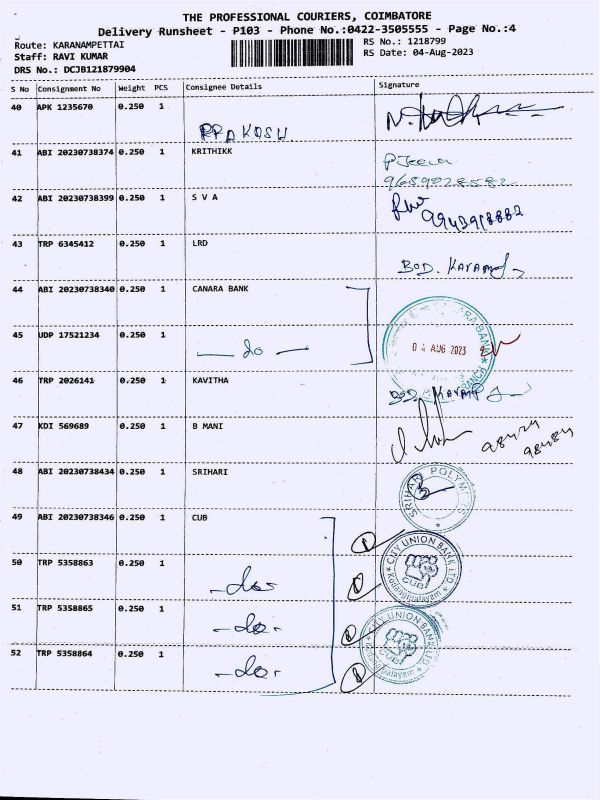 THE PROFESSIONAL COURIERS, COIMBATORE
Delivery Runsheet - P103 - Phone No.:0422-3505555 - Page No.:4
Route: KARANAMPETTAI
RS No.: 1218799
Staff: RAVI KUMAR
RS Date: 04-Aug-2023
DRS No.: DCJB121879904
S No Consignment No Weight PCS Consignee Details Signature
40 APK 1235670 0.250 1
PRAKASH
41 ABI 20230738374 0.250 1 KRITHIKK
P Jeeva
42 ABI 20230738399 0.250 1 S V A
9943918882
43 TRP 6345412 0.250 1 LRD
BOD.
44 ABI 20230738340 0.250 1 CANARA BANK
45 UDP 17521234 0.250 1
do
04 AUG 2023
46 TRP 2026141 0.250 1 KAVITHA
BOD.
47 KDI 569689 0.250 1 B MANI
48 ABI 20230738434 0.250 1 SRIHARI
SRIHARI
49 ABI 20230738346 0.250 1 CUB
50 TRP 5358863 0.250 1
-do-
CITY UNION BANK LTD
CUB
51 TRP 5358865 0.250 1
-do-
52 TRP 5358864 0.250 1
-do-
CITY UNION BANK LTD
CUB